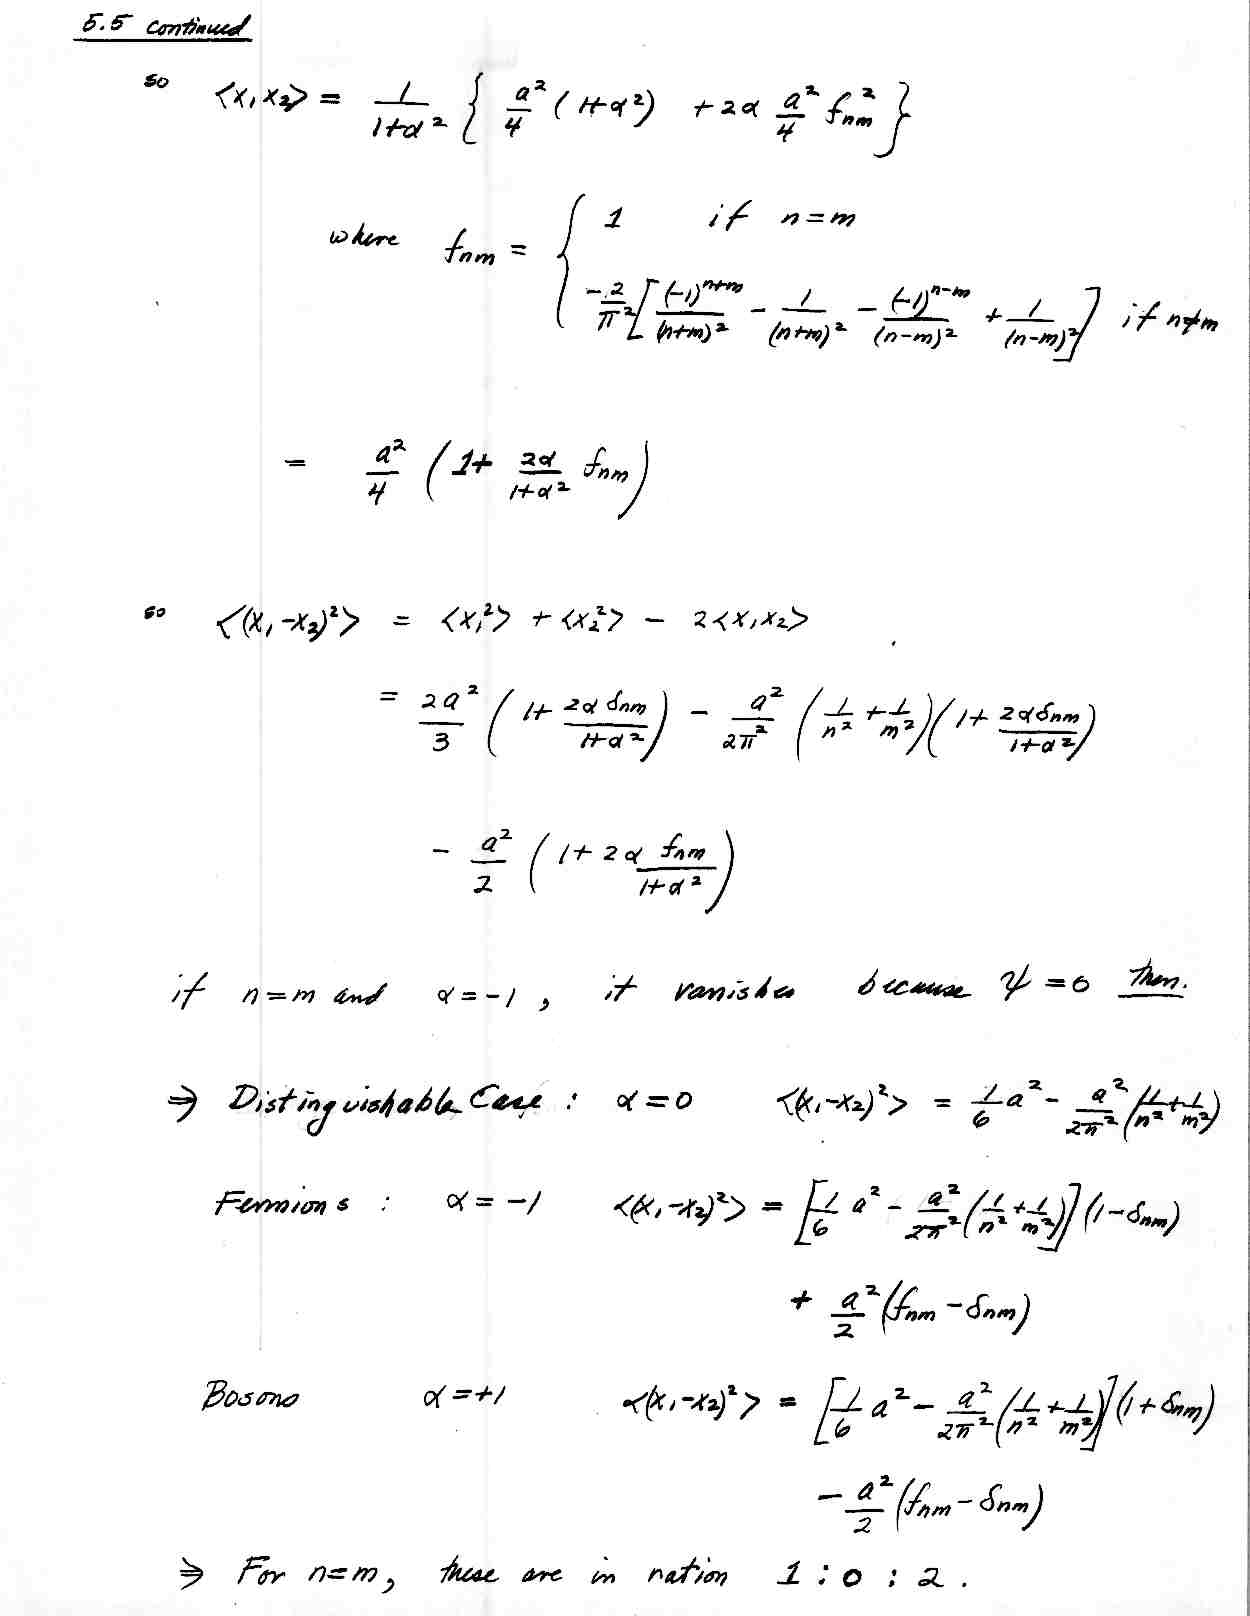 5.5 continued
so ⟨x₁x₂⟩ = 1/(1+α²) { a²/4 (1+α²) + 2α a²/4 f²ₙₘ }
where fₙₘ = { 1 if n=m
-2/π² [ (-1)ⁿ⁺ᵐ/(n+m)² - 1/(n+m)² - (-1)ⁿ⁻ᵐ/(n-m)² + 1/(n-m)² ] if n≠m
= a²/4 ( 1+ 2α/(1+α²) fₙₘ )
so ⟨(x₁-x₂)²⟩ = ⟨x₁²⟩ + ⟨x₂²⟩ - 2⟨x₁x₂⟩
= 2a²/3 ( 1+ 2αδₙₘ/(1+α²) ) - a²/2π² ( 1/n² + 1/m² )( 1+ 2αδₙₘ/(1+α²) )
- a²/2 ( 1+ 2α fₙₘ/(1+α²) )
if n=m and α=-1, it vanishes because ψ=0 then.
⇒ Distinguishable Case: α=0 ⟨(x₁-x₂)²⟩ = 1/6 a² - a²/2π² ( 1/n² + 1/m² )
Fermions: α=-1 ⟨(x₁-x₂)²⟩ = [ 1/6 a² - a²/2π² ( 1/n² + 1/m² ) ] (1-δₙₘ)
+ a²/2 (fₙₘ - δₙₘ)
Bosons α=+1 ⟨(x₁-x₂)²⟩ = [ 1/6 a² - a²/2π² ( 1/n² + 1/m² ) ] (1+δₙₘ)
- a²/2 (fₙₘ - δₙₘ)
⇒ For n=m, these are in ration 1 : 0 : 2.